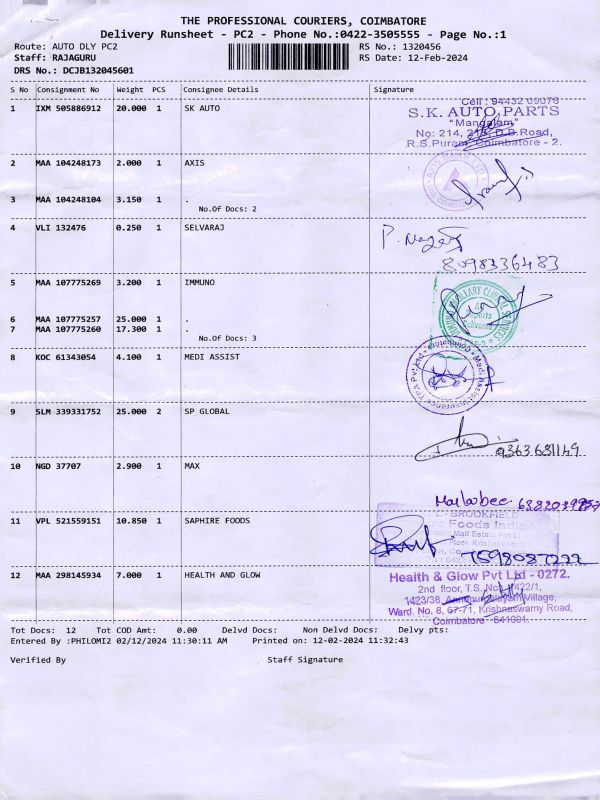 THE PROFESSIONAL COURIERS, COIMBATORE
Delivery Runsheet - PC2 - Phone No.:0422-3505555 - Page No.:1
Route: AUTO DLY PC2 RS No.: 1320456
Staff: RAJAGURU RS Date: 12-Feb-2024
DRS No.: DCJB132045601
S No Consignment No Weight PCS Consignee Details Signature
1 IXM 505886912 20.000 1 SK AUTO
Cell : 94432 09076
S.K. AUTO PARTS
"Mangalam"
No: 214, D.B.Road,
R.S.Puram, Coimbatore - 2.
2 MAA 104248173 2.000 1 AXIS
3 MAA 104248104 3.150 1 .
No.Of Docs: 2
4 VLI 132476 0.250 1 SELVARAJ
8098336483
5 MAA 107775269 3.200 1 IMMUNO
6 MAA 107775257 25.000 1 .
7 MAA 107775260 17.300 1 .
No.Of Docs: 3
8 KOC 61343054 4.100 1 MEDI ASSIST
9 SLM 339331752 25.000 2 SP GLOBAL
9363681149
10 NGD 37707 2.900 1 MAX
11 VPL 521559151 10.850 1 SAPHIRE FOODS
BROOKFIELD
Foods
7598087222
12 MAA 298145934 7.000 1 HEALTH AND GLOW
Health & Glow Pvt Ltd - 0272.
2nd floor, T.S. No. 1422/1,
1423/38, Village,
Ward. No. 8, 67-71, Krishnaswamy Road,
Coimbatore - 641001.
Tot Docs: 12 Tot COD Amt: 0.00 Delvd Docs: Non Delvd Docs: Delvy pts:
Entered By :PHILOMI2 02/12/2024 11:30:11 AM Printed on: 12-02-2024 11:32:43
Verified By Staff Signature